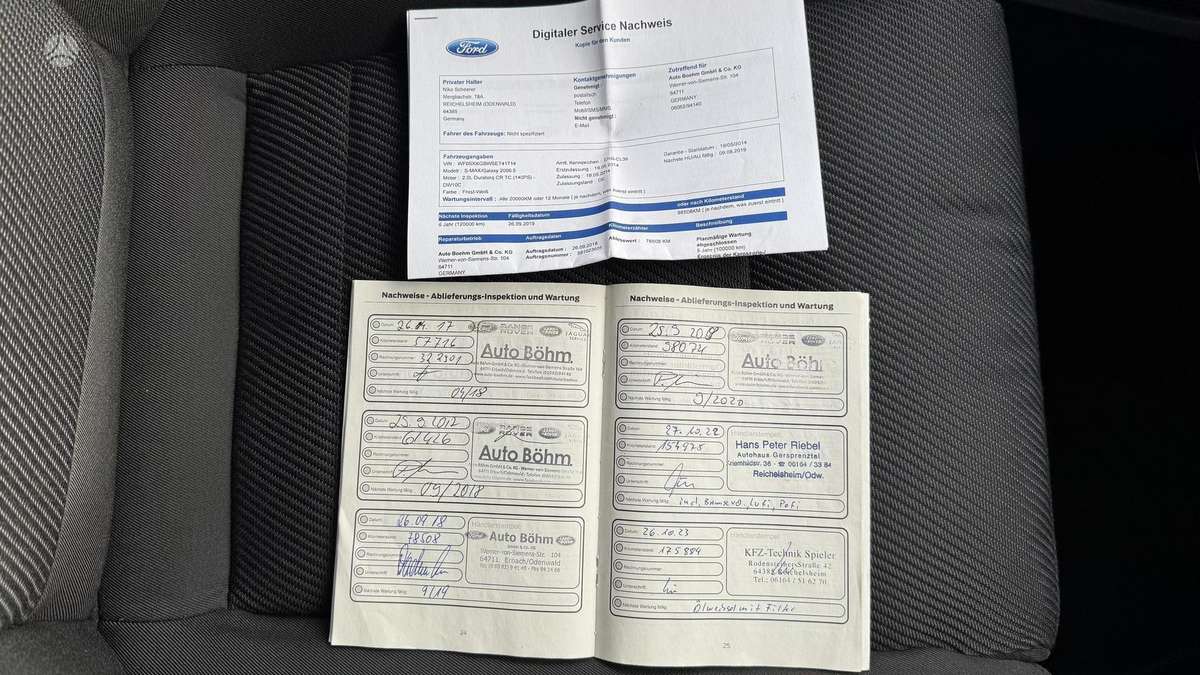 Digitaler Service Nachweis
Kopie für den Kunden
Ford
Privater Halter
Niko Scheerer
REICHELSHEIM (ODENWALD)
64385
Germany
Fahrer des Fahrzeugs: Nicht spezifiziert
Kontaktgenehmigungen
Genehmigt :
postalisch
Telefon
Mobil/SMS/MMS
Nicht genehmigt :
E-Mail
Zutreffend für
Auto Boehm GmbH & Co. KG
Werner-von-Siemens-Str. 104
64711
GERMANY
06062/94140
Fahrzeugangaben
Modell : S-MAX/Galaxy 2006.5
Motor : 2.0L Duratorq CR TC (140PS) -
DW10C
Farbe : Frost-Weiß
Wartungsintervall : Alle 20000KM oder 12 Monate ( je nachdem, was zuerst eintritt )
Amtl. Kennzeichen :
Erstzulassung :
Zulassung :
Zulassungsland :
Garantie - Startdatum :
Nächste HU/AU fällig :
Nächste Inspektion
Fälligkeitsdatum
oder nach Kilometerstand
6 Jahr (120000 km)
26.09.2019
98508KM ( je nachdem, was zuerst eintritt )
Reparaturbetrieb
Auftragsdaten
Kilometerzähler
Beschreibung
Auto Boehm GmbH & Co. KG
Werner-von-Siemens-Str. 104
64711
GERMANY
Auftragsdatum : 26.09.2018
Auftragsnummer :
78508 KM
Planmäßige Wartung
abgeschlossen
5 Jahr (100000 km)
Nachweise - Ablieferungs-Inspektion und Wartung
Datum
Kilometerstand 57716
Rechnungsnummer
Unterschrift
Nächste Wartung fällig 04/18
RANGE ROVER
JAGUAR
Auto Böhm
Datum
Kilometerstand 61426
Rechnungsnummer
Unterschrift
Nächste Wartung fällig 09/2018
RANGE ROVER
Auto Böhm
Datum 26.09.18
Kilometerstand 78508
Rechnungsnummer
Unterschrift
Nächste Wartung fällig 9/19
Händlerstempel
Auto Böhm
GmbH & Co. KG
Werner-von-Siemens-Str. 104
64711 Erbach/Odenwald
24
Nachweise - Ablieferungs-Inspektion und Wartung
Datum 25.9.2018
Kilometerstand 98074
Rechnungsnummer
Unterschrift
Nächste Wartung fällig 9/2020
Auto Böhm
Datum 27.10.22
Kilometerstand 154975
Rechnungsnummer
Unterschrift
Nächste Wartung fällig
Händlerstempel
Hans Peter Riebel
Autohaus Gersprenztal
06164 / 33 84
Reichelsheim/Odw.
Datum 26.10.23
Kilometerstand 175884
Rechnungsnummer
Unterschrift
Nächste Wartung fällig Ölwechsel mit Filter
Händlerstempel
KFZ-Technik Spieler
Rodensteiner Straße 42
64385 Reichelsheim
Tel.: 06164 / 51 62 70
25